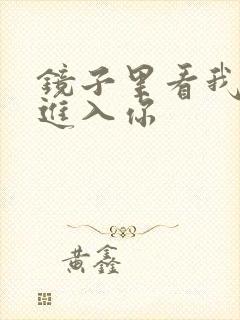 鏡子里看我
進入你
黄鑫